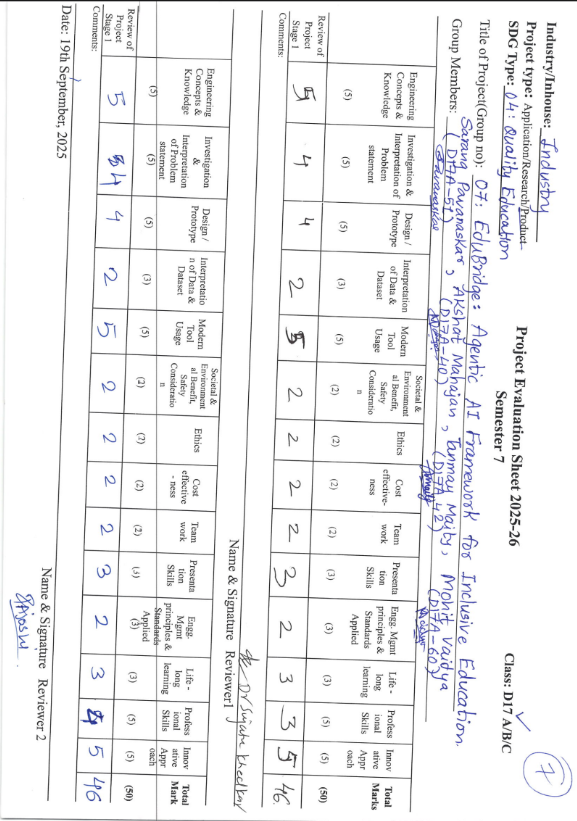 7
Industry/Inhouse: Industry
Project Evaluation Sheet 2025-26
Class: D17 A/B/C
Project type: Application/Research/Product
Semester 7
SDG Type: 04: Quality Education
Title of Project(Group no): 07: EduBridge: Agentic AI Framework for Inclusive Education.
Group Members: Sarang Pavanaskar, Akshat Mahajan, Tanmay Maity, Mohit Vaidya
(D17A-51) (D17A-40) (D17A-42) (D17A-60)
Review of Project Stage 1 Engineering Concepts & Knowledge Investigation & Interpretation of Problem statement Design / Prototype Interpretation of Data & Dataset Modern Tool Usage Societal & Environment al Benefit, Safety Consideratio n Ethics Cost effective- ness Team work Presenta tion Skills Engg. Mgmt principles & Standards Applied Life - long learning Profess ional Skills Innov ative Appr oach Total Marks
(5) (5) (5) (3) (5) (2) (2) (2) (2) (3) (3) (3) (5) (5) (50)
5 4 4 2 5 2 2 2 2 3 2 3 3 5 46
Comments:
Dr Sujata Khedkar
Name & Signature Reviewer1
Review of Project Stage 1 Engineering Concepts & Knowledge Investigation & Interpretation of Problem statement Design / Prototype Interpretatio n of Data & Dataset Modern Tool Usage Societal & Environment al Benefit, Safety Consideratio n Ethics Cost effective - ness Team work Presenta tion Skills Engg. Mgmt principles & Standards Applied Life - long learning Profess ional Skills Innov ative Appr oach Total Mark
(5) (5) (5) (3) (5) (2) (2) (2) (2) (3) (3) (3) (5) (5) (50)
5 4 4 2 5 2 2 2 2 3 2 3 5 46
Comments:
Date: 19th September, 2025
Name & Signature Reviewer 2